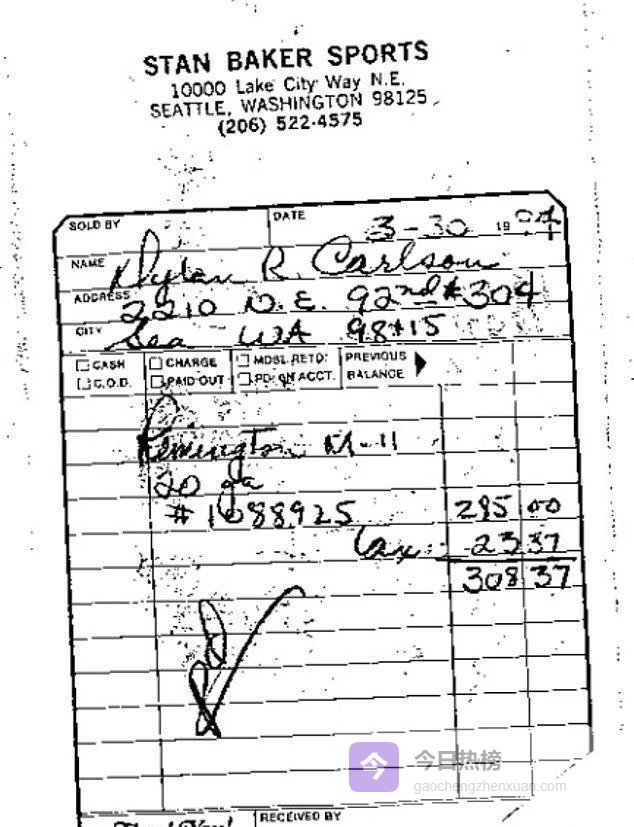 STAN BAKER SPORTS
10000 Lake City Way N.E.
SEATTLE, WASHINGTON 98125
(206) 522-4575
SOLD BY DATE 3-30 1994
NAME Dylan R. Carlson
ADDRESS 2210 N.E. 92nd #304
CITY Sea WA 98115
CASH CHARGE MDSE. RETD. PREVIOUS
C.O.D. PAID OUT PD. ON ACCT. BALANCE
Remington M-11
20 ga
#1088925 285 00
tax 23 37
308 37
今 今日热榜
gaochengzhenxuan.com
RECEIVED BY